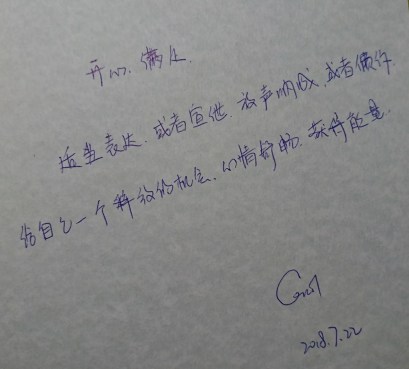 开心. 懒人.
适当表达. 或者宣泄. 放声呐喊. 或者倾听
给自己一个释放的机会. 心情舒畅. 获得能量.
2018.7.22